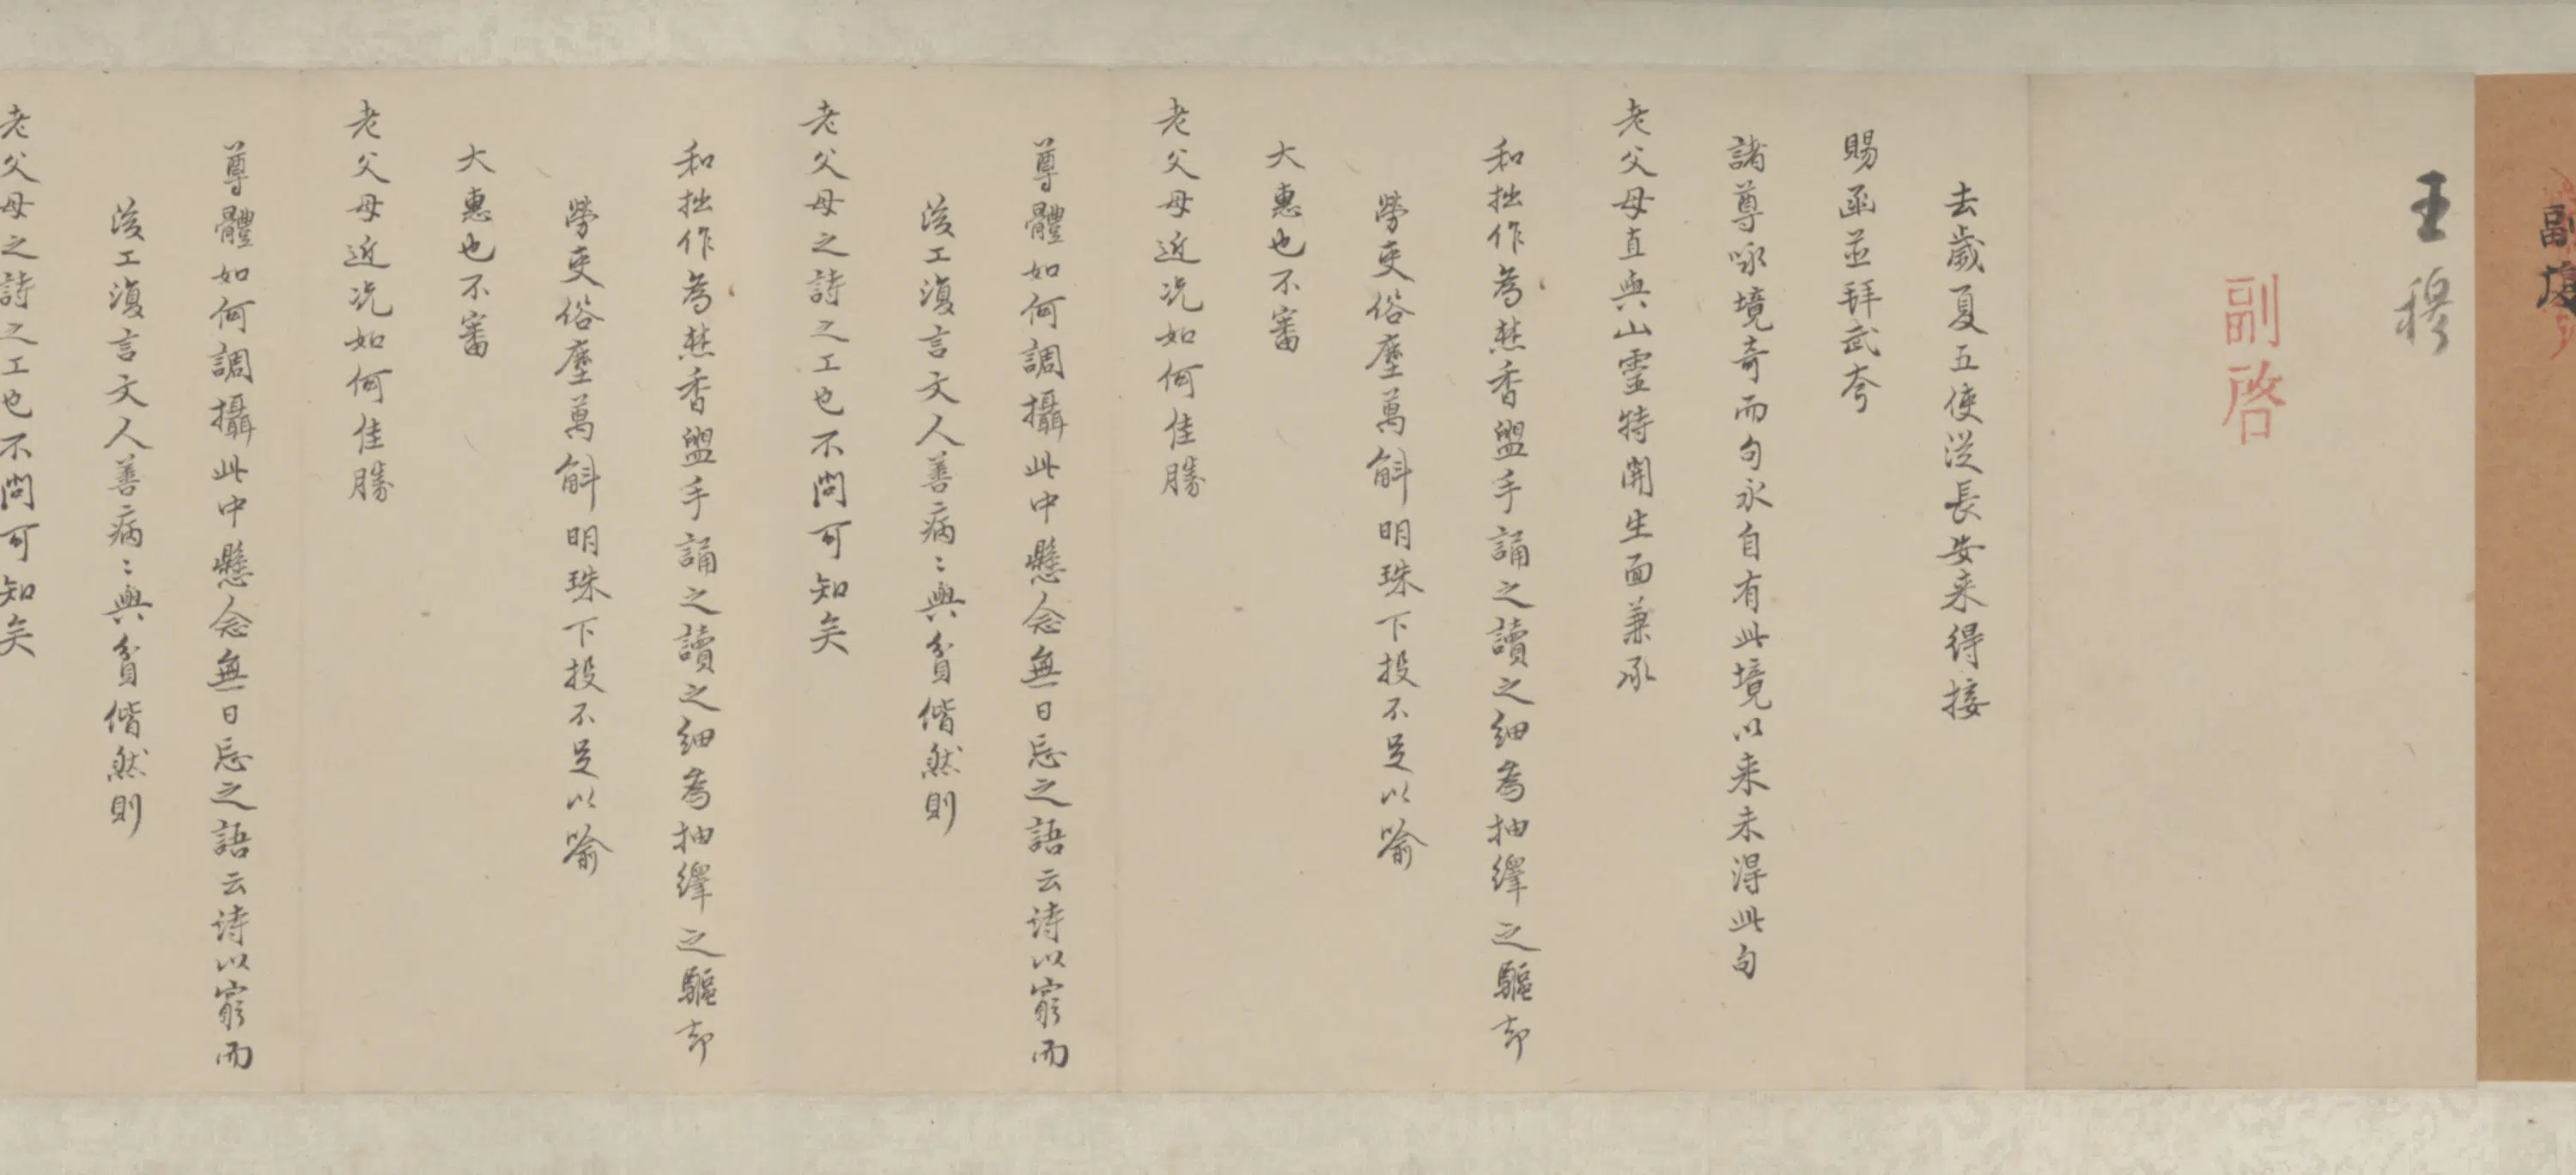 副
王穆
副啓
去歲夏五使從長安来得接
賜函並拜武夸
諸尊咏境奇而句永自有此境以来未得此句
老父母直與山霊特開生面兼承
和拙作為爇香盥手誦之讀之細為抽繹之驅却
勞吏俗塵萬斛明珠下投不足以喻
大惠也不審
老父母近况如何佳勝
尊體如何調攝此中懸念無日忘之語云诗以窮而
後工復言文人善病〻與貧偕然則
老父母之詩之工也不問可知矣
和拙作為爇香盥手誦之讀之細為抽繹之驅却
勞吏俗塵萬斛明珠下投不足以喻
大惠也不審
老父母近况如何佳勝
尊體如何調攝此中懸念無日忘之語云诗以窮而
後工復言文人善病〻與貧偕然則
老父母之詩之工也不問可知矣